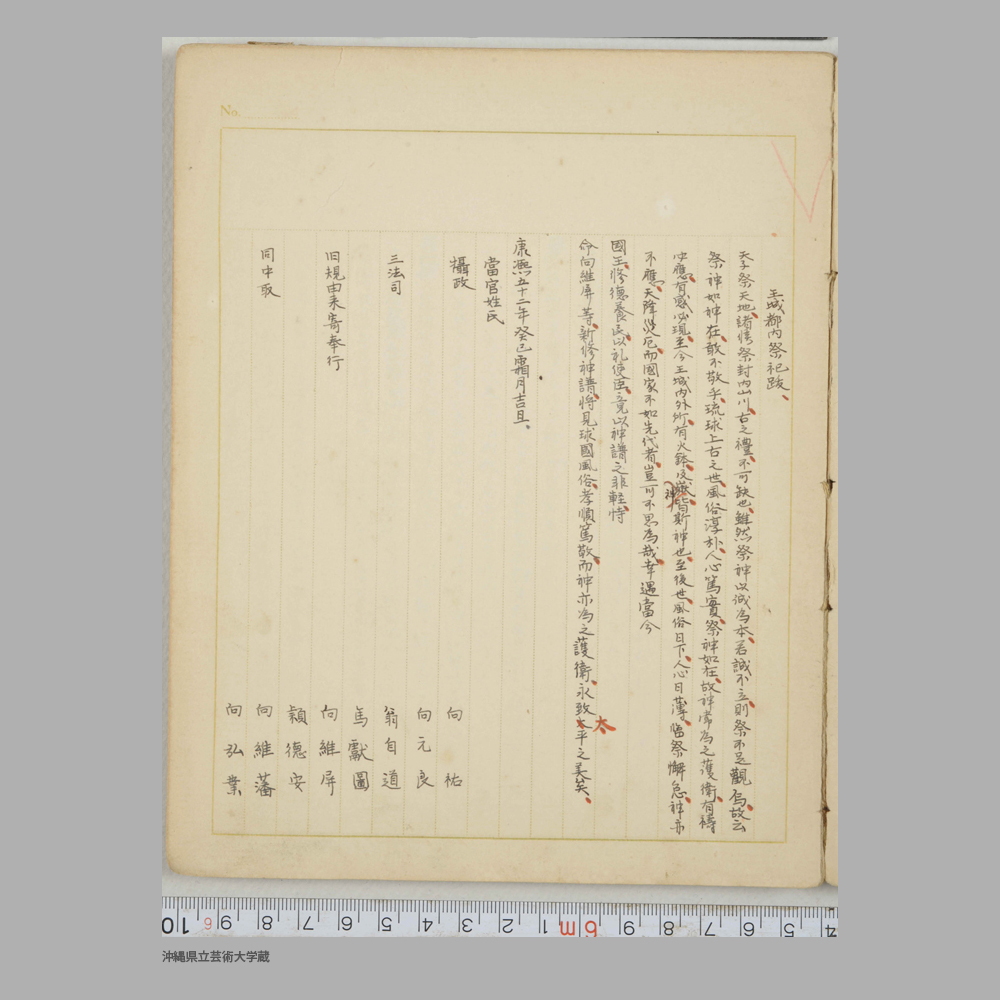 No.
王城都内祭祀跋、
天子祭天地、諸侯祭封内山川、古之禮、不可缺也、雖然祭神以誠為本、若誠不立、則祭不足觀焉、故云
祭神如神在、敢不敬乎、琉球上古之世、風俗淳朴、人心篤實、祭神如在、故神常為之護衛、有禱
必應、有感必現、至今王城内外、所有火鉢、及嶽、皆斯神也、至後世、風俗日下、人心日薄、臨祭懈怠、神亦
不應、天降災厄、而國家不如先代者、豈可不思為哉、幸遇當今
國王、修德養民、以礼使臣、竟以神譜之非軽、恃
命向維屏等、新修神譜、將見球國風俗、孝順篤敬、而神亦為之護衛、永致太平之美矣、
太
康熙五十二年癸巳霜月吉旦、
當官姓氏
攝政
向祐
向元良
三法司
翁自道
馬獻圖
旧規由来寄奉行
向維屏
穎德安
同中取
向維藩
向弘業
10 9 8 7 6 5 4 3 2 1 6m 9 8 7 6 5 4
沖縄県立芸術大学蔵